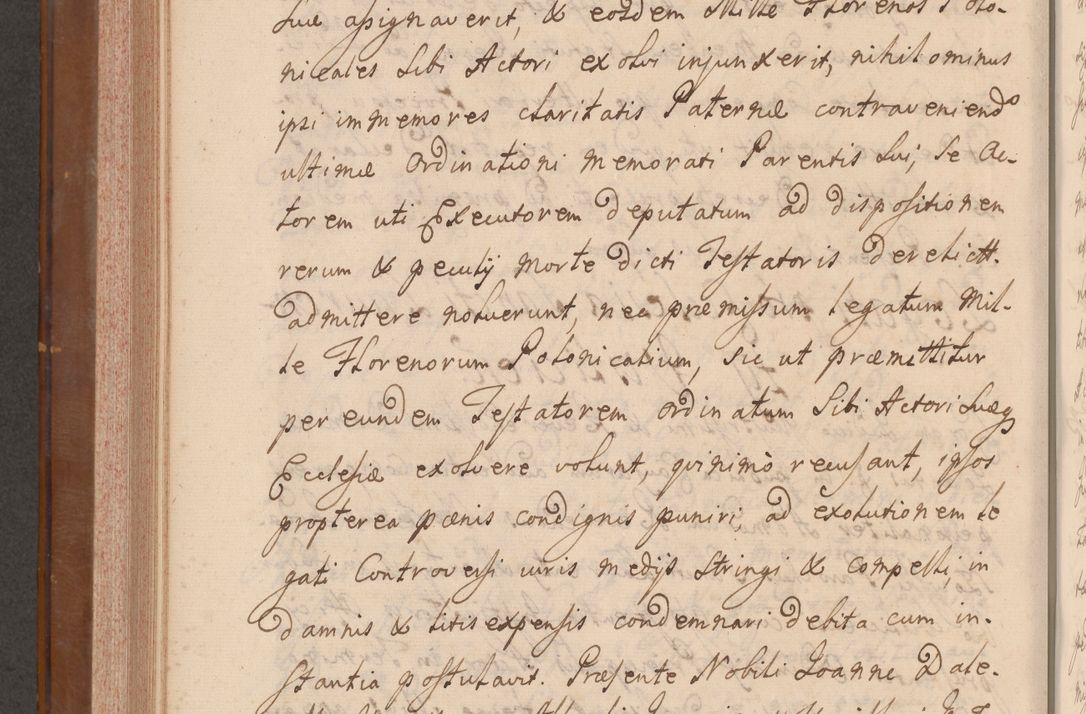 suæ assignaverit, & eosdem Mille Florenos Polo-
nicales sibi Actori exolvi injunxerit, nihilominus
ipsi immemores charitatis Paternæ contraveniendo
ultimæ Ordinationi memorati Parentis sui, se Ac-
torem uti Executorem deputatum ad dispositionem
rerum & peculij morte dicti Testatoris derelictt.
admittere noluerunt, nec præmissum legatum Mil-
le Florenorum Polonicalium, sic ut præmittitur
per eundem Testatorem ordinatum sibi Actori suæq
Ecclesiæ exolvere volunt, quinimò recusant, ipsos
propterea pœnis condignis puniri, ad exolutionem le
gati Controversi iuris medijs stringi & compelli, in
damnis & litis expensis condemnari debita cum in-
stantia postulavit. Præsente Nobili Joanne Dale-